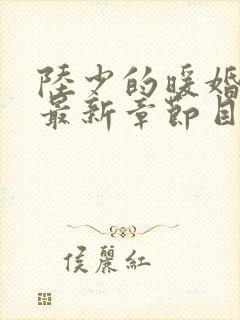 陸少的暖婚
最新章節目
侯麗紅